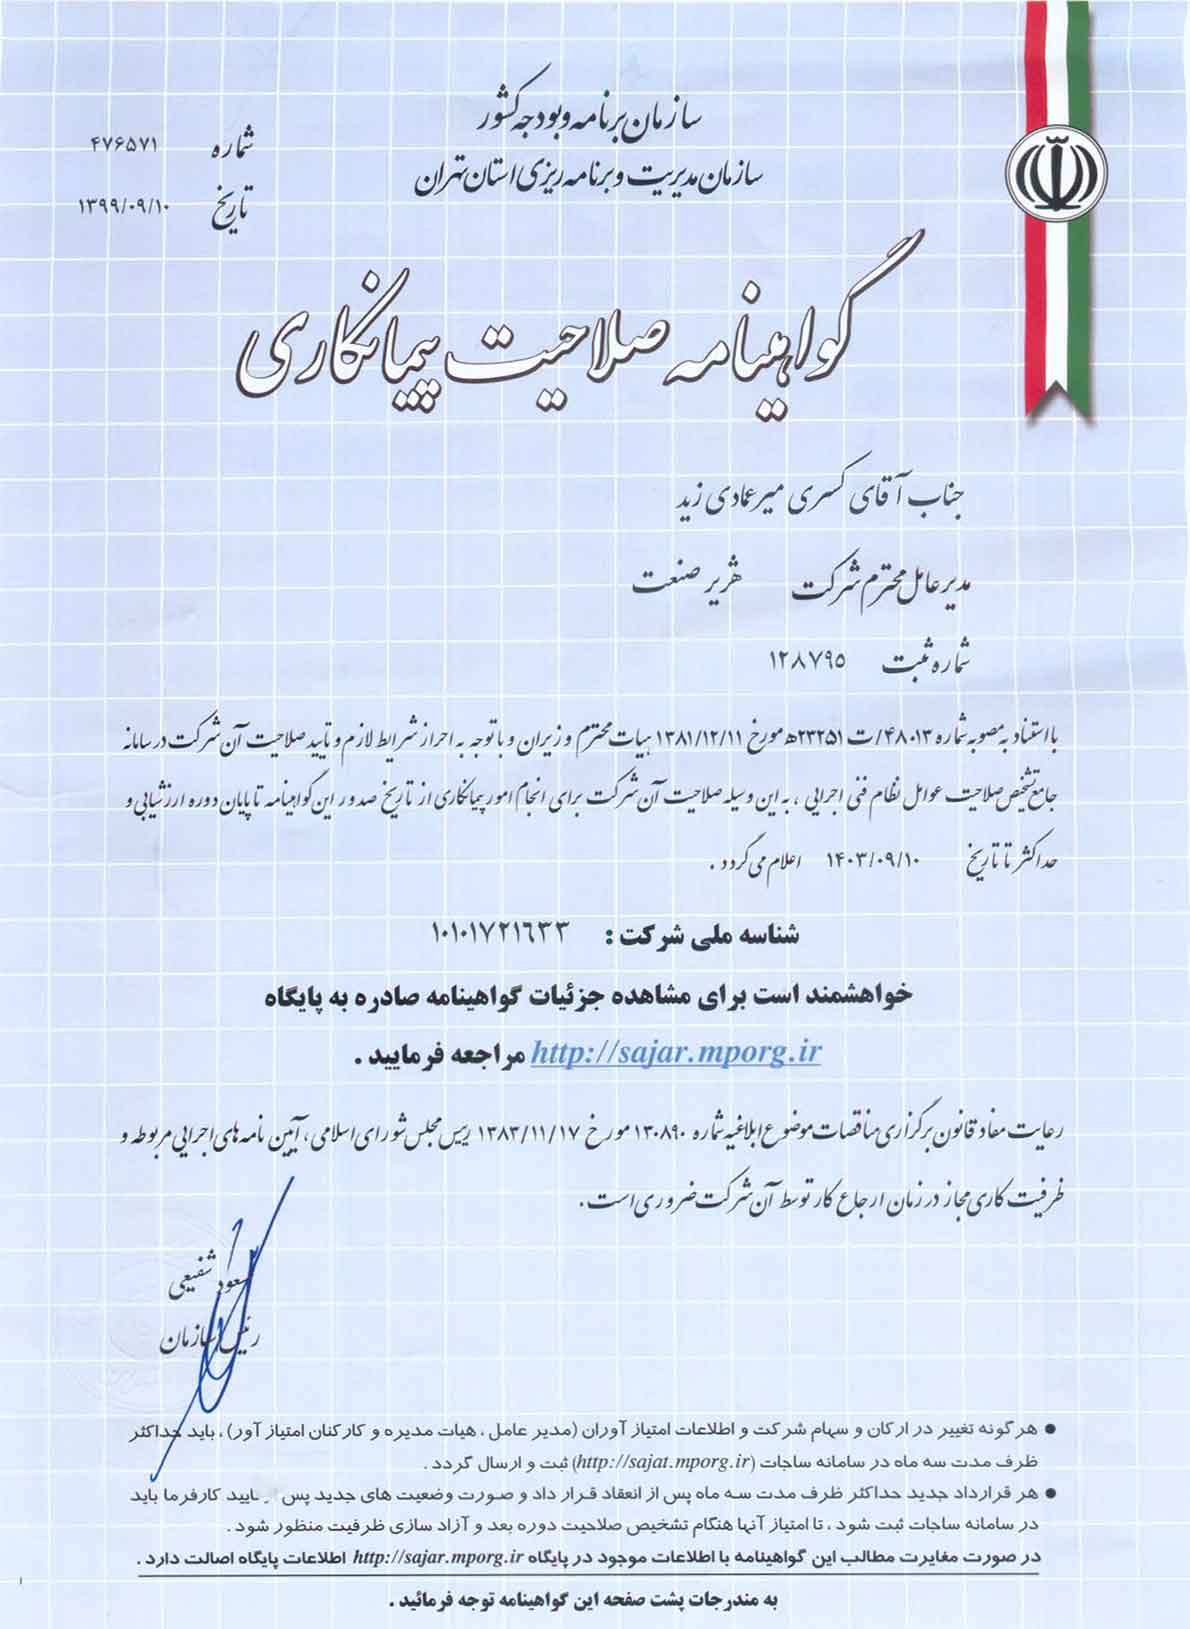 سازمان برنامه و بودجه کشور
سازمان مدیریت و برنامه ریزی استان تهران
شماره ۴۷۶۵۷۱
تاریخ ۱۳۹۹/۰۹/۱۰
گواهینامه صلاحیت پیمانکاری
جناب آقای کسری میرعمادی زید
مدیرعامل محترم شرکت هژیر صنعت
شماره ثبت ۱۲۸۷۹۵
با استناد به مصوبه شماره ۴۸۰۱۳/ت ۲۳۲۵۱ه مورخ ۱۳۸۱/۱۲/۱۱ هیات محترم وزیران و با توجه به احراز شرایط لازم و تایید صلاحیت آن شرکت در سامانه
جامع تشخیص صلاحیت عوامل نظام فنی اجرایی ، به این وسیله صلاحیت آن شرکت برای انجام امور پیمانکاری از تاریخ صدور این گواهینامه تا پایان دوره ارزشیابی و
حداکثر تا تاریخ ۱۴۰۳/۰۹/۱۰ اعلام می گردد .
شناسه ملی شرکت : ۱۰۱۰۱۷۲۱۶۳۳
خواهشمند است برای مشاهده جزئیات گواهینامه صادره به پایگاه
http://sajar.mporg.ir مراجعه فرمایید .
رعایت مفاد قانون برگزاری مناقصات موضوع ابلاغیه شماره ۱۳۰۸۹۰ مورخ ۱۳۸۳/۱۱/۱۷ رییس مجلس شورای اسلامی ، آیین نامه های اجرایی مربوطه و
ظرفیت کاری مجاز در زمان ارجاع کار توسط آن شرکت ضروری است .
مسعود شفیعی
رئیس سازمان
● هرگونه تغییر در ارکان و سهام شرکت و اطلاعات امتیاز آوران (مدیر عامل ، هیات مدیره و کارکنان امتیاز آور) ، باید حداکثر
ظرف مدت سه ماه در سامانه ساجات (http://sajat.mporg.ir) ثبت و ارسال گردد .
● هر قرارداد جدید حداکثر ظرف مدت سه ماه پس از انعقاد قرار داد و صورت وضعیت های جدید پس از تایید کارفرما باید
در سامانه ساجات ثبت شود ، تا امتیاز آنها هنگام تشخیص صلاحیت دوره بعد و آزاد سازی ظرفیت منظور شود .
در صورت مغایرت مطالب این گواهینامه با اطلاعات موجود در پایگاه http://sajar.mporg.ir اطلاعات پایگاه اصالت دارد .
به مندرجات پشت صفحه این گواهینامه توجه فرمائید .